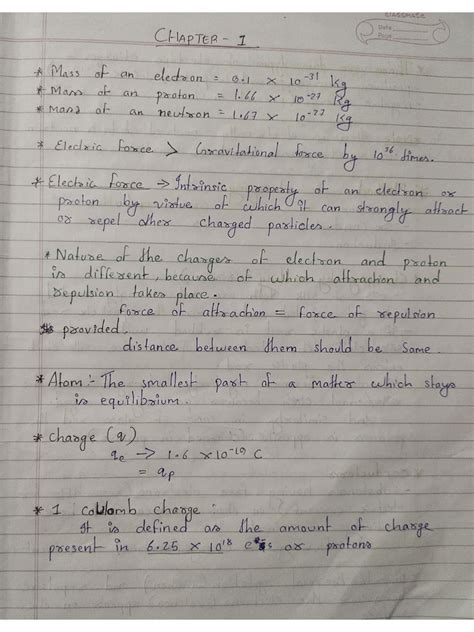 classmate
Date
Page
CHAPTER - I
* Mass of an electron = 9.1 × 10⁻³¹ Kg
* Mass of an proton = 1.66 × 10⁻²⁷ Kg
* Mass of an neutron = 1.67 × 10⁻²⁷ Kg
* Electric force > Gravitational force by 10³⁶ times.
* Electric force → Intrinsic property of an electron or
proton by virtue of which it can strongly attract
or repel other charged particles.
* Nature of the charges of electron and proton
is different, because of which attraction and
repulsion takes place.
force of attraction = force of repulsion
provided.
distance between them should be same.
* Atom :- The smallest part of a matter which stays
in equilibrium.
* charge (q)
qe → 1.6 × 10⁻¹⁹ C
= qp
* 1 coulomb charge :
It is defined as the amount of charge
present in 6.25 × 10¹⁸ e⁻s or protons